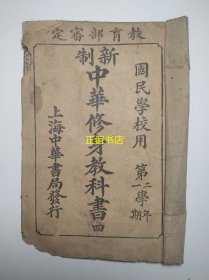 教育部審定
國民學校用 第二學年第一期
新制中華修身教科書 四
上海中華書局發行
正谊书店